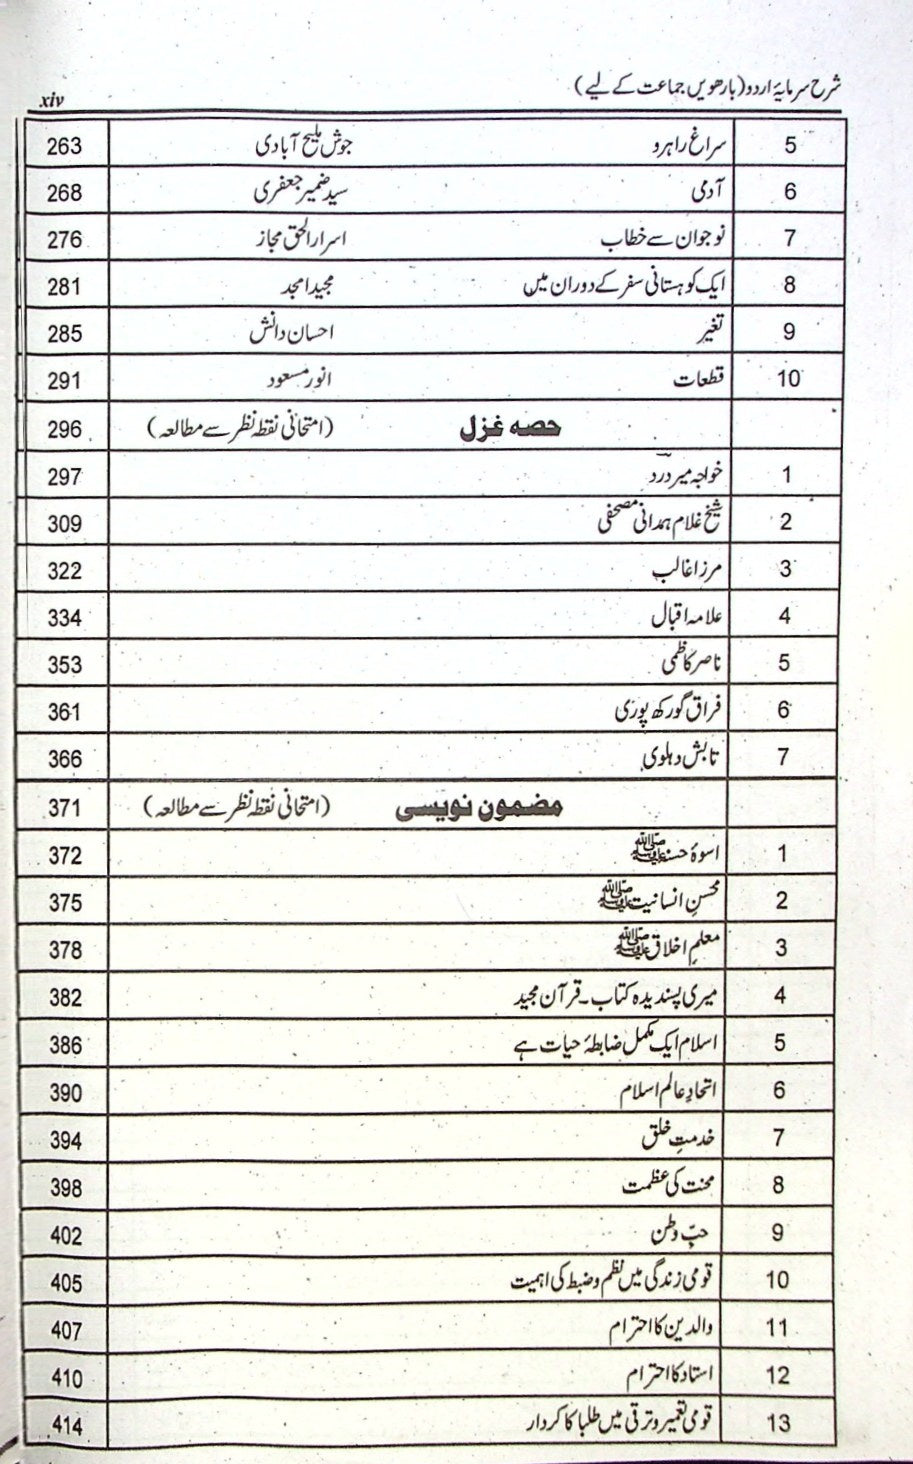 شرح سرمایۂ اردو (بارھویں جماعت کے لیے) xiv
5 سراغِ راہرو جوش ملیح آبادی 263
6 آدمی سید ضمیر جعفری 268
7 نوجوان سے خطاب اسرار الحق مجاز 276
8 ایک کوہستانی سفر کے دوران میں مجید امجد 281
9 تغیر احسان دانش 285
10 قطعات انور مسعود 291
حصہ غزل (امتحانی نقطہ نظر سے مطالعہ) 296
1 خواجہ میر درد 297
2 شیخ غلام ہمدانی مصحفی 309
3 مرزا غالب 322
4 علامہ اقبال 334
5 ناصر کاظمی 353
6 فراق گورکھ پوری 361
7 تابش دہلوی 366
مضمون نویسی (امتحانی نقطہ نظر سے مطالعہ) 371
1 اسوۂ حسنہ ﷺ 372
2 محسنِ انسانیت ﷺ 375
3 معلمِ اخلاق ﷺ 378
4 میری پسندیدہ کتاب۔ قرآن مجید 382
5 اسلام ایک مکمل ضابطۂ حیات ہے 386
6 اتحادِ عالم اسلام 390
7 خدمتِ خلق 394
8 محنت کی عظمت 398
9 حبِّ وطن 402
10 قومی زندگی میں نظم و ضبط کی اہمیت 405
11 والدین کا احترام 407
12 استاد کا احترام 410
13 قومی تعمیر و ترقی میں طلبا کا کردار 414